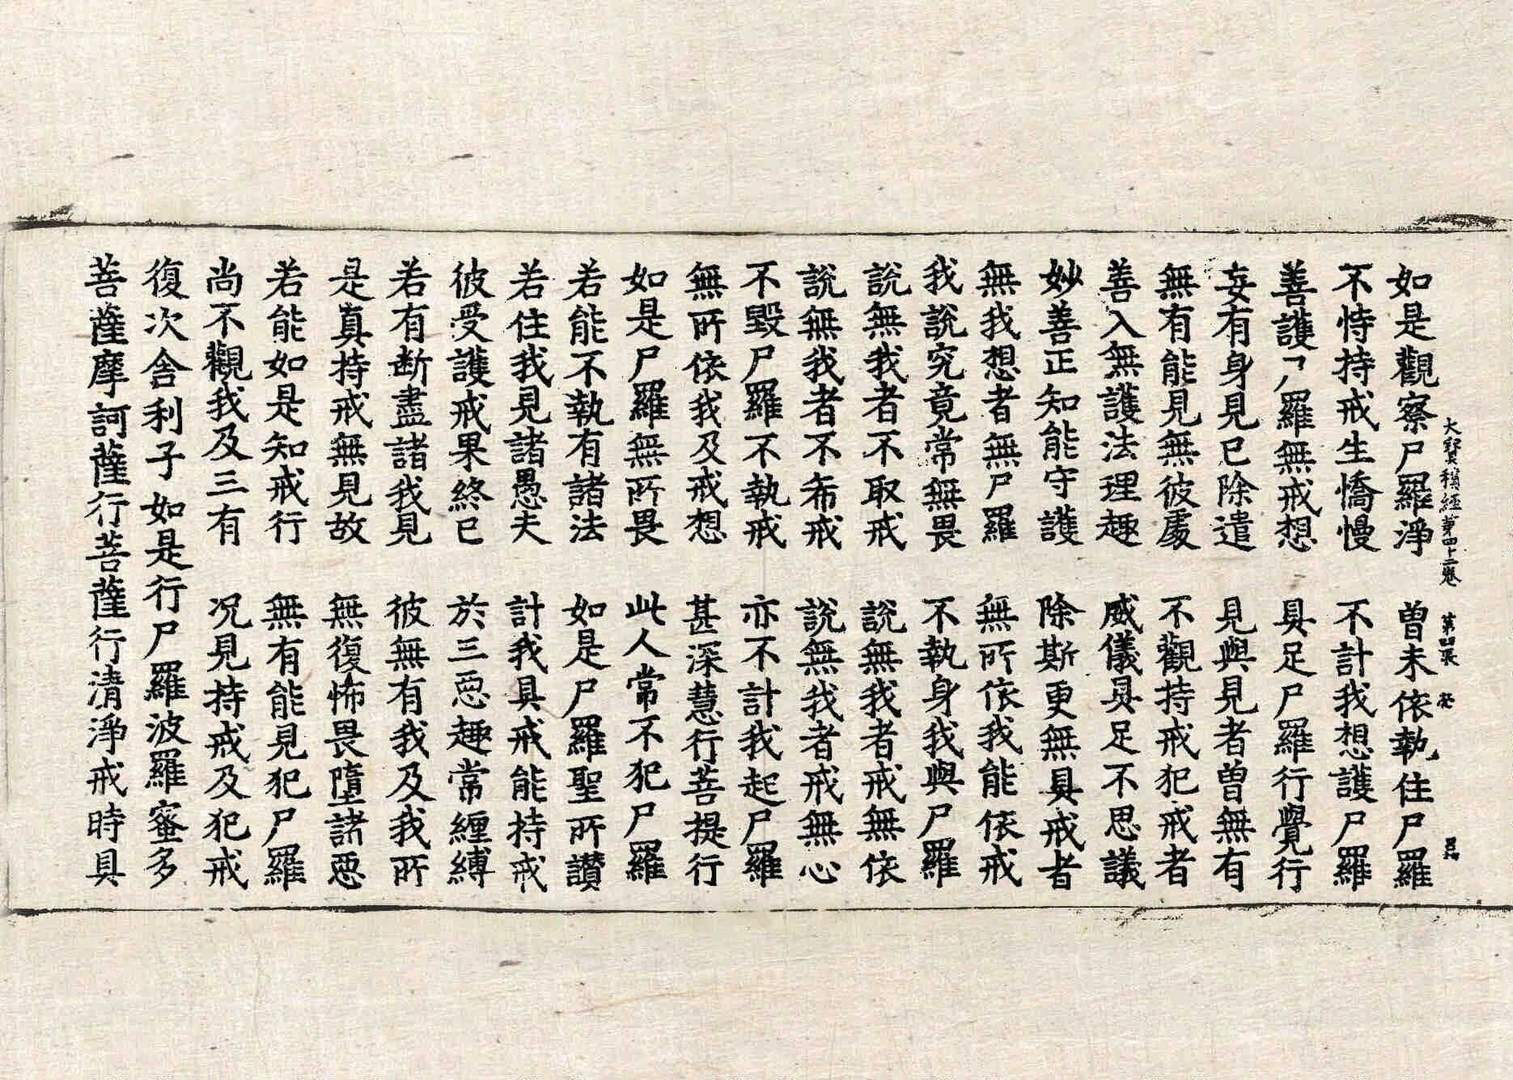 大寶積經第四十二卷 第四張
如是觀察尸羅淨 曾未依執住尸羅
不恃持戒生憍慢 不計我想護尸羅
善護尸羅無戒想 具足尸羅行覺行
妄有身見已除遣 見與見者曾無有
無有能見無彼處 不觀持戒犯戒者
善入無護法理趣 威儀具足不思議
妙善正知能守護 除斯更無具戒者
無我想者無尸羅 無所依我能依戒
我說究竟常無畏 不執身我與尸羅
說無我者不取戒 說無我者戒無依
說無我者不希戒 說無我者戒無心
不毀尸羅不執戒 亦不計我起尸羅
無所依我及戒想 甚深慧行菩提行
如是尸羅無所畏 此人常不犯尸羅
若能不執有諸法 如是尸羅聖所讚
若住我見諸愚夫 計我具戒能持戒
彼受護戒果終已 於三惡趣常纏縛
若有斷盡諸我見 彼無有我及我所
是真持戒無見故 無復怖畏墮諸惡
若能如是知戒行 無有能見犯尸羅
尚不觀我及三有 况見持戒及犯戒
復次舍利子如是行尸羅波羅蜜多
菩薩摩訶薩行菩薩行清淨戒時具